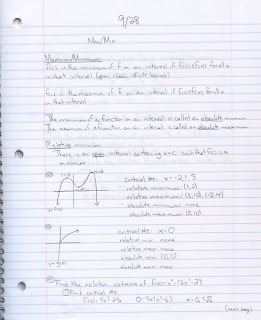 9/28
Max/Min
Maximum/Minimum
f(c) is the minimum of f on an interval if f(c)≤f(x) for all x
in that interval (open, closed, infinite bounds)
f(c) is the maximum of f on an interval if f(c)≥f(x) for all x
in that interval.
The minimum of a function on an interval is called an absolute minimum
The maximum of a function on an interval is called an absolute maximum
Relative minimum
There is an open interval containing x=c such that f(c) is a
minimum
critical #s: x=-2,1,5
relative minimum: (1,2)
relative maximum: (5,10), (-2,4)
absolute minimum: none
absolute maximum: (5,10)
y=f(x)
critical #s: x=0
relative min: none
relative max: none
absolute min: (0,0)
absolute max: none
Find the relative extrema of
Find critical #s
(next page)